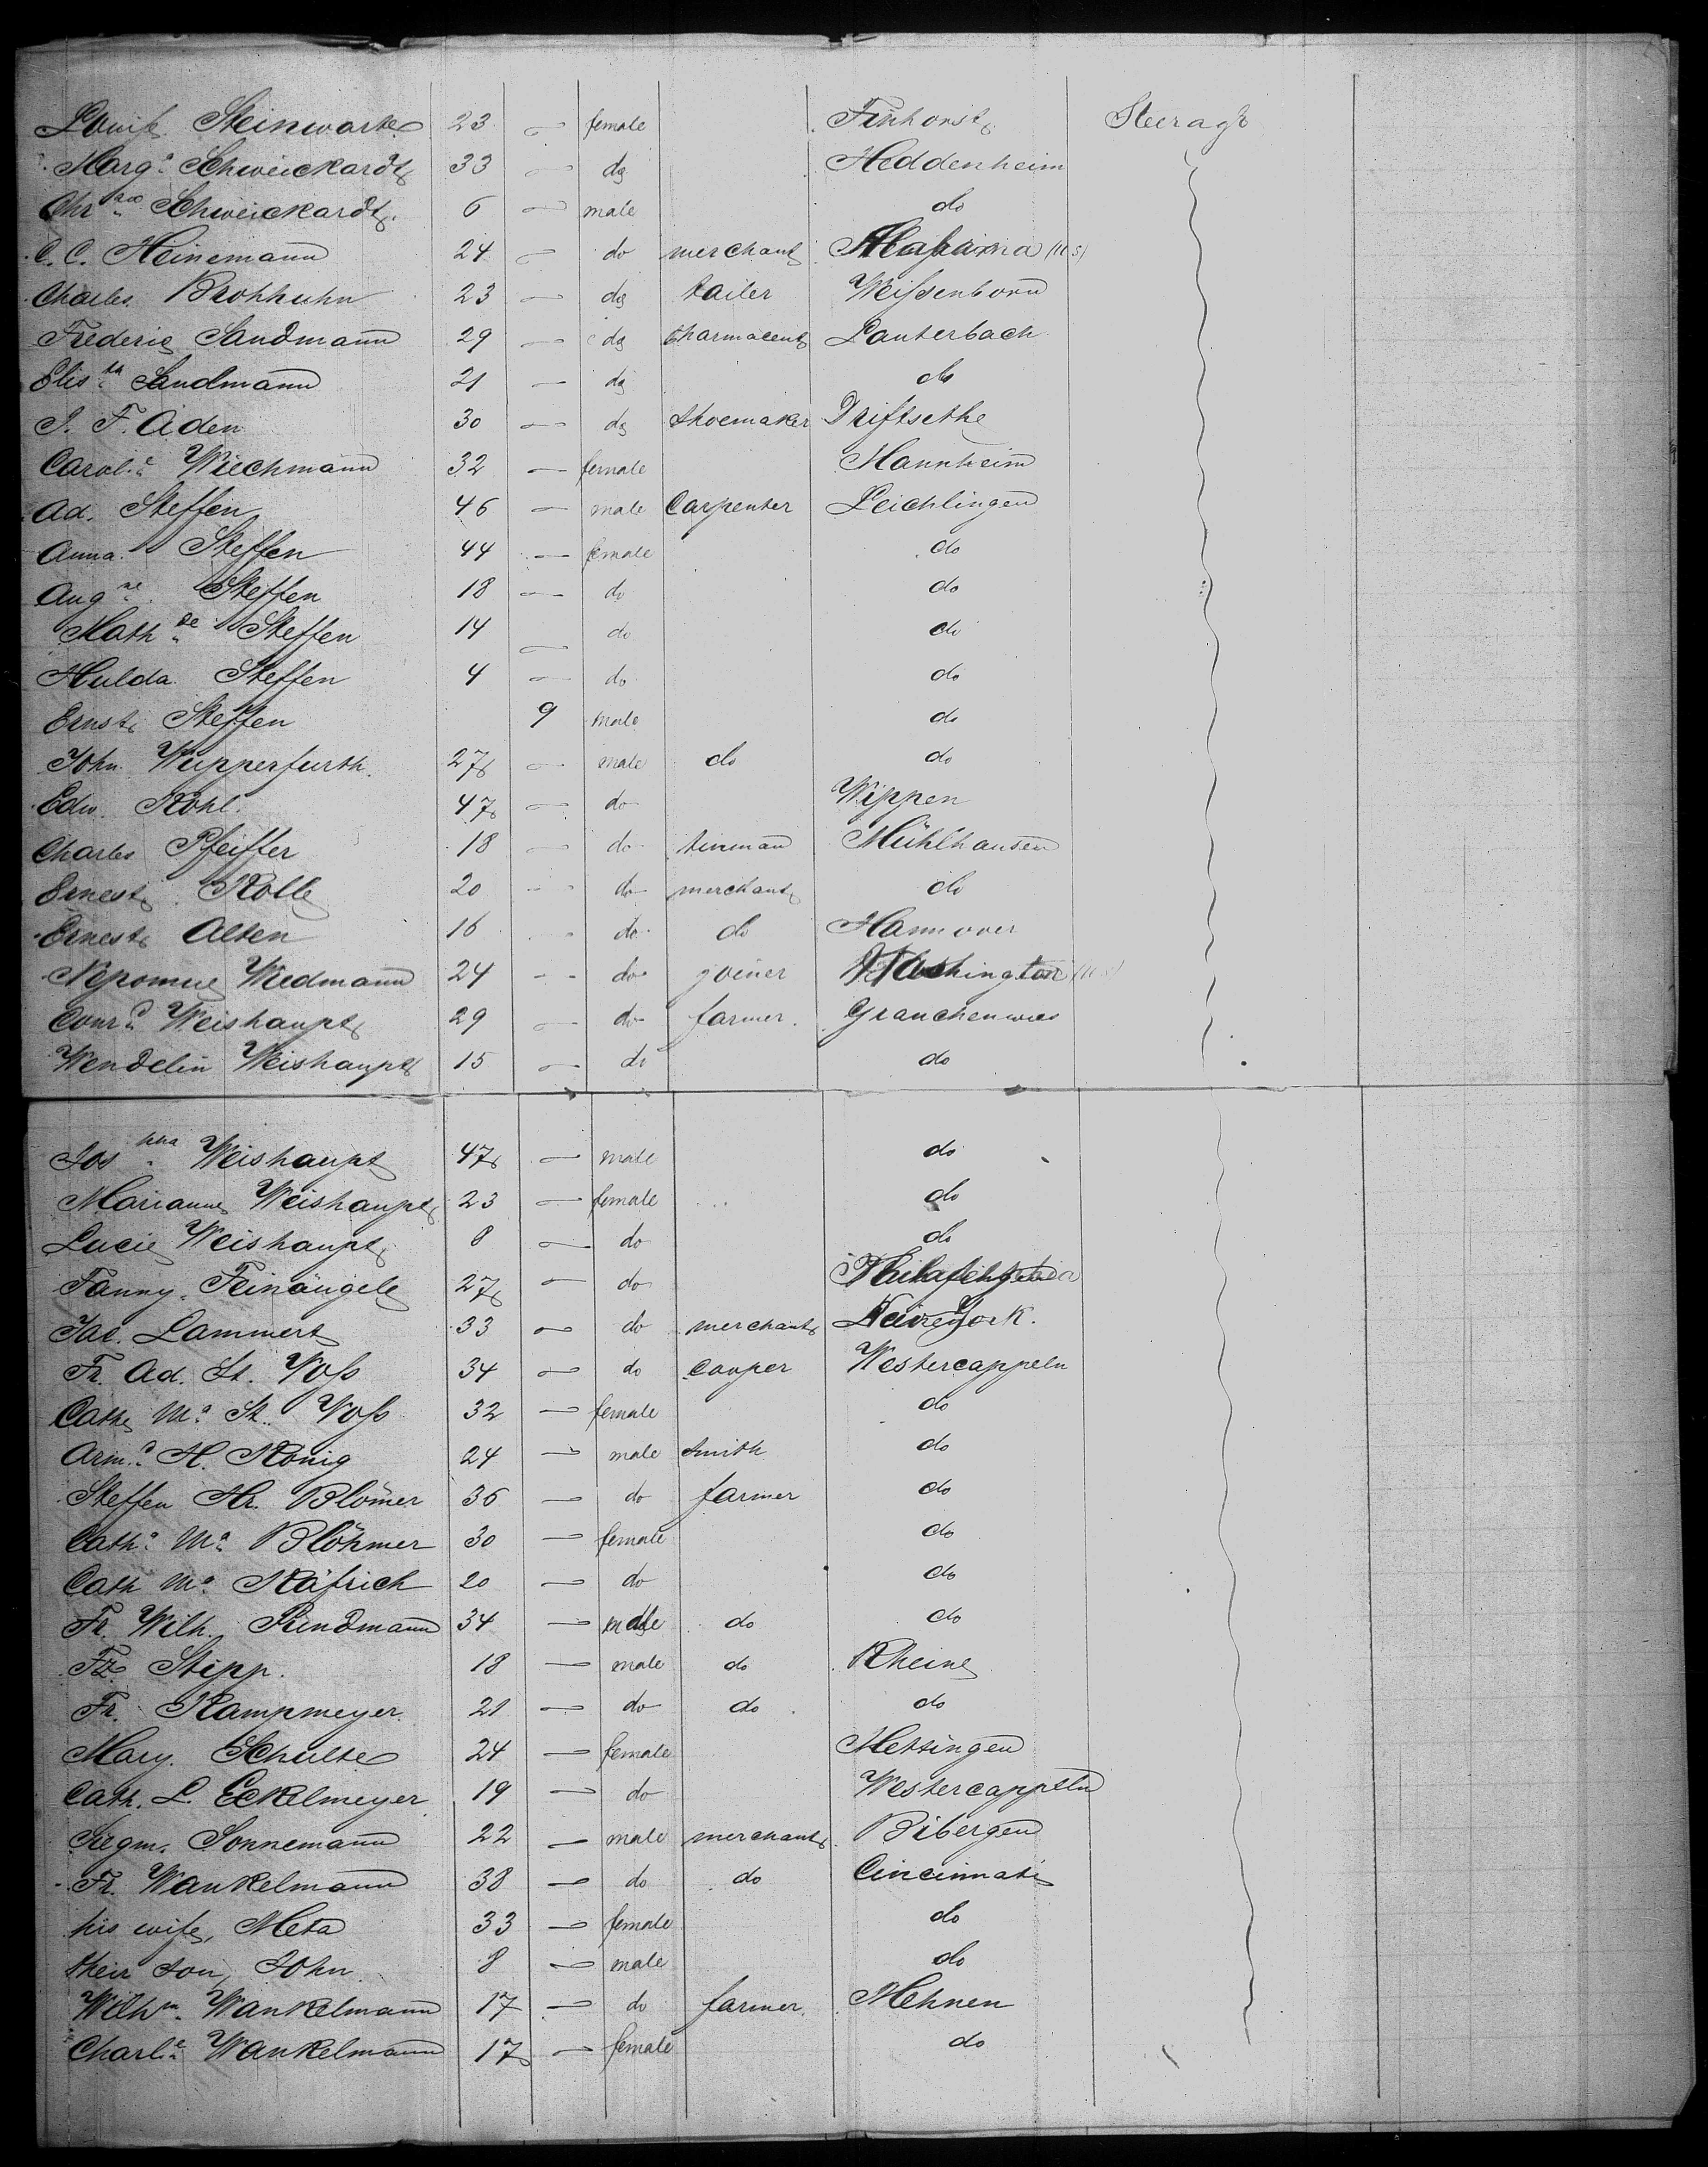 Louise Steinwarte 23 — female Finhorst Steerage
Marg.a Schweickardt 33 — do Heddenheim
Chr Schweickardt 6 — male do
C. C. Heinemann 24 — do merchant Alabama (U S)
Charles Brohhuhn 23 — do tailer Weissenborn
Frederic Sandmann 29 — do Lauterbach
Elis.th Sandmann 21 — do do
J. F. Aden 30 — do shoemaker Driftsethe
Carol.e Wiechmann 32 — female Mannheim
Ad. Steffen 46 — male Carpenter Leichlingen
Anna Steffen 44 — female do
Aug.ne Steffen 18 — do do
Math.de Steffen 14 — do do
Hulda Steffen 4 — do do
Ernst Steffen 9 male do
John Wupperfurth 27 — male do do
Edw. Kohl 47 — do Wippen
Charles Pfeiffer 18 — do tinman Mühlhausen
Ernest Kolle 20 — do merchant do
Ernest Alten 16 do do Hannover
Nepomue Wiedmann 24 — do joiner Washington (U S)
Conr.d Weishaupt 29 — do farmer Grauchenwies
Wendelin Weishaupt 15 — do do
Jos.pha Weishaupt 47 — male do
Marianne Weishaupt 23 — female do
Lucie Weishaupt 8 — do do
Fanny Feinäugele 27 — do Philadelphia
Jac. Lammert 33 — do merchant New York.
Fr. Ad. St. Voss 34 — do Cooper Westercappeln
Cath M.a St. Voss 32 — female do
Arm.d H. König 24 — male Smith do
Steffen Hr. Blömer 36 — do farmer do
Cath.a M.a Blöhmer 30 — female do
Cath M.a 20 — do do
Fr. Wilh. Rindmann 34 — male do do
Fz Stipp. 18 — male do Rheine
Fr. Kampmeyer 21 — do do do
Mary Schulte 24 — female Mettingen
Cath. L. Eckelmeyer 19 — do Westercappeln
Siegm. Sonnemann 22 — male merchant Bibergen
Fr. Wankelmann 38 — do do Cincinnati
his wife, Meta 33 — female do
their son, John 8 — male do
Wilh.m Wankelmann 17 — do farmer Mehnen
Charl.e Wankelmann 17 — female do